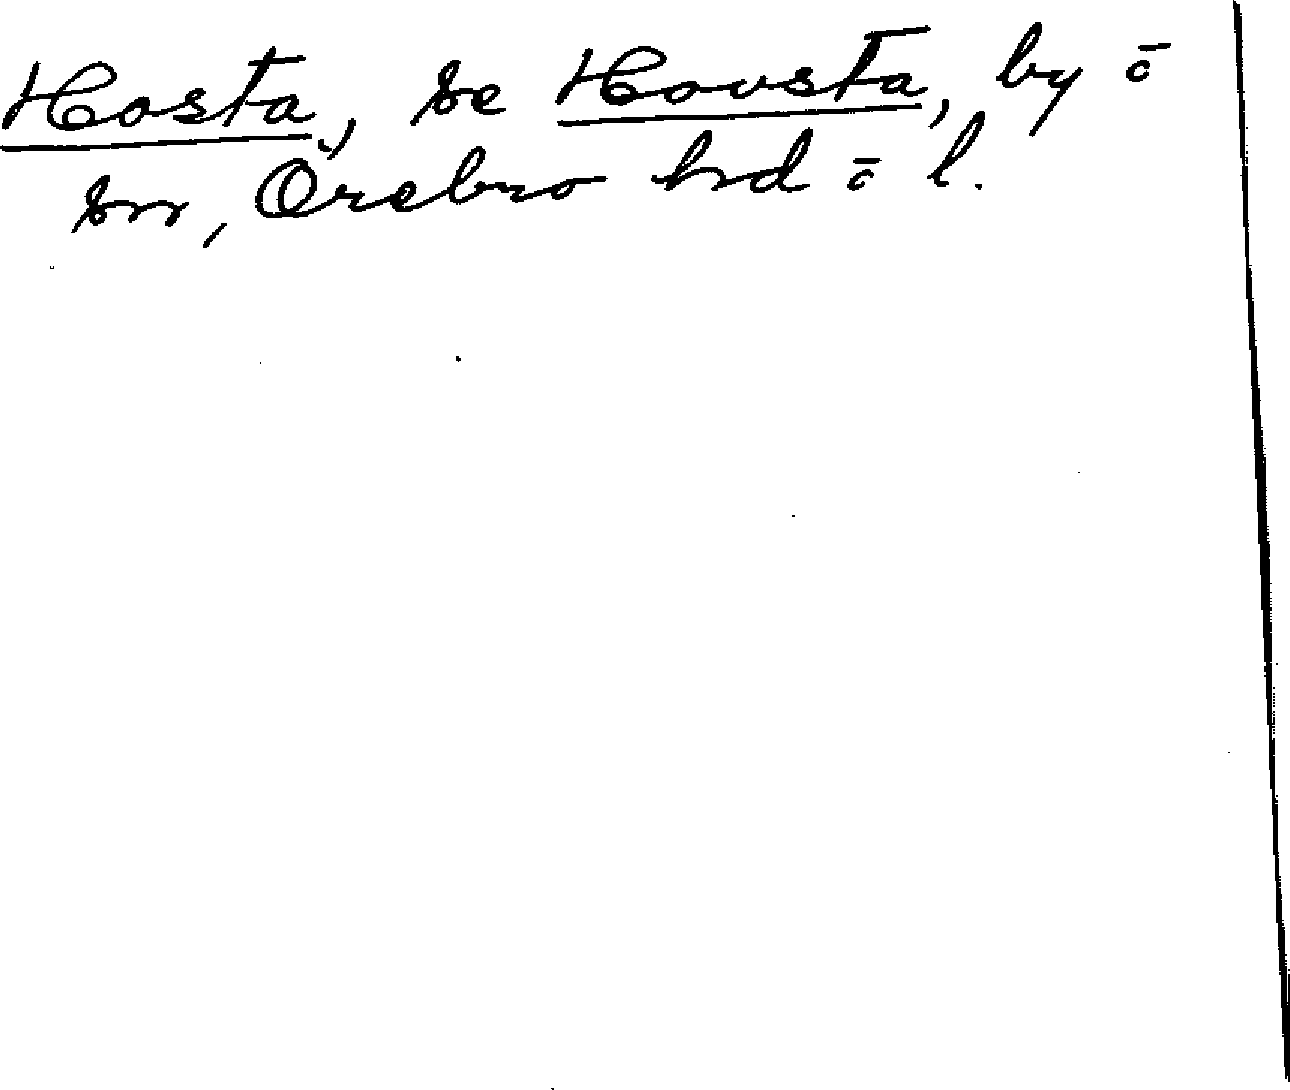 Hosta, se Hovsta, by o
sn, Örebro hd o l.